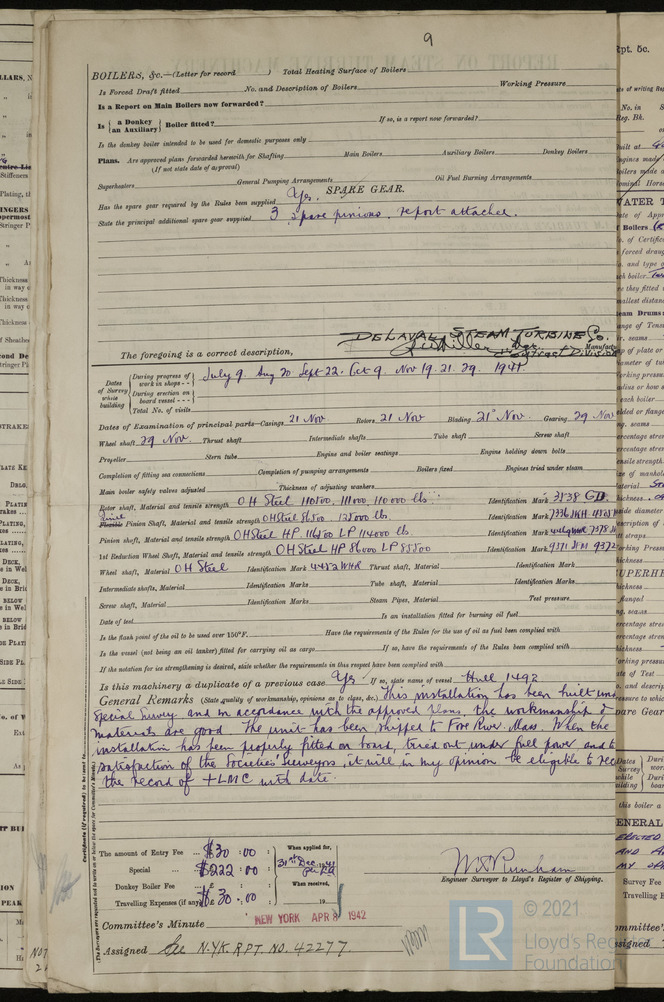 9
BOILERS, &c.—(Letter for record ) Total Heating Surface of Boilers
Is Forced Draft fitted No. and Description of Boilers Working Pressure
Is a Report on Main Boilers now forwarded?
Is { a Donkey / an Auxiliary } Boiler fitted? If so, is a report now forwarded?
Is the donkey boiler intended to be used for domestic purposes only
Plans. Are approved plans forwarded herewith for Shafting Main Boilers Auxiliary Boilers Donkey Boilers
(If not state date of approval)
Superheaters General Pumping Arrangements Oil Fuel Burning Arrangements
SPARE GEAR.
Has the spare gear required by the Rules been supplied Yes.
State the principal additional spare gear supplied 3 spare pinions, report attached.
DE LAVAL STEAM TURBINE Co.
The foregoing is a correct description, Contract Division Manufact
Dates of Survey while building
During progress of work in shops - - July 9. Aug 20 Sept 22. Oct 9. Nov 19. 21. 29. 1941
During erection on board vessel - - -
Total No. of visits
Dates of Examination of principal parts—Casings 21 Nov Rotors 21 Nov Blading 21 Nov. Gearing 29 Nov
Wheel shaft 29 Nov. Thrust shaft Intermediate shafts Tube shaft Screw shaft
Propeller Stern tube Engine and boiler seatings Engine holding down bolts
Completion of fitting sea connections Completion of pumping arrangements Boilers fixed Engines tried under steam
Main boiler safety valves adjusted Thickness of adjusting washers
Rotor shaft, Material and tensile strength OH Steel 110500. 111000 110000 lbs. Identification Mark 3538 GD.
Pinion Shaft, Material and tensile strength OH Steel 125000 lbs Identification Mark 7336 JKH.
Pinion shaft, Material and tensile strength OH Steel HP. 116500 LP 114000 lbs. Identification Mark
1st Reduction Wheel Shaft, Material and tensile strength OH Steel HP 86000 LP 85500 Identification Mark 9371 9372
Wheel shaft, Material OH Steel Identification Mark 4452 WHR Thrust shaft, Material Identification Mark
Intermediate shafts, Material Identification Marks Tube shaft, Material Identification Marks
Screw shaft, Material Identification Marks Steam Pipes, Material Test pressure
Date of test Is an installation fitted for burning oil fuel
Is the flash point of the oil to be used over 150°F. Have the requirements of the Rules for the use of oil as fuel been complied with
Is the vessel (not being an oil tanker) fitted for carrying oil as cargo If so, have the requirements of the Rules been complied with
If the notation for ice strengthening is desired, state whether the requirements in this respect have been complied with
Is this machinery a duplicate of a previous case Yes If so, state name of vessel Hull 1492
General Remarks (State quality of workmanship, opinions as to class, &c.) This installation has been built und
Special Survey and in accordance with the approved plans, the workmanship &
materials are good. The unit has been shipped to Fore River Mass. When the
installation has been properly fitted on board, tried out under full power and to
satisfaction of the Societies Surveyors, it will in my opinion be eligible to rec
the record of +LMC with date.
Certificate (if required) to be sent to
(The Surveyors are requested not to write on or below the space for Committee's Minute.)
The amount of Entry Fee ... $30 : 00 : When applied for,
Special ... $222 : 00 : 31st Dec. 1941
Donkey Boiler Fee ... £ : : When received,
Travelling Expenses (if any) £ 30 : 00 : 19
Engineer Surveyor to Lloyd's Register of Shipping.
NEW YORK APR 8 1942
Committee's Minute
Assigned See N.YK. RPT. NO. 42277
LR
© 2021
Lloyd's Register
Foundation